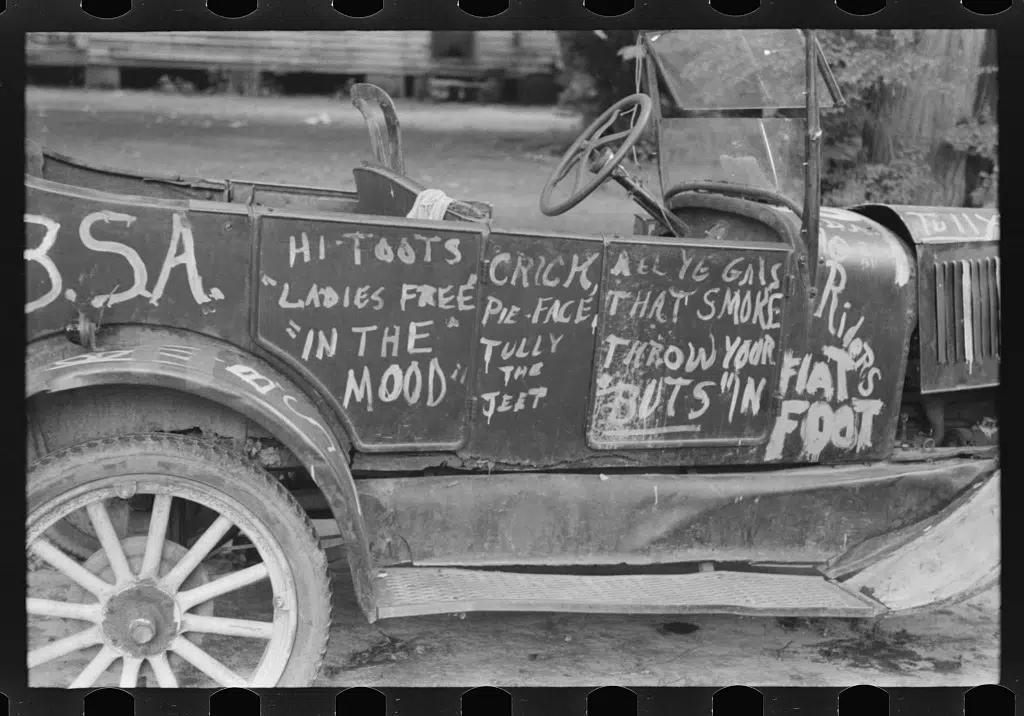 B.S.A.
HI-TOOTS
"LADIES FREE"
"IN THE
MOOD"
CRICK,
PIE-FACE,
TULLY
THE
JEET
ALL YE GALS
THAT SMOKE
THROW YOUR
"BUTS" IN
RIDERS
FLAT
FOOT
TULLY